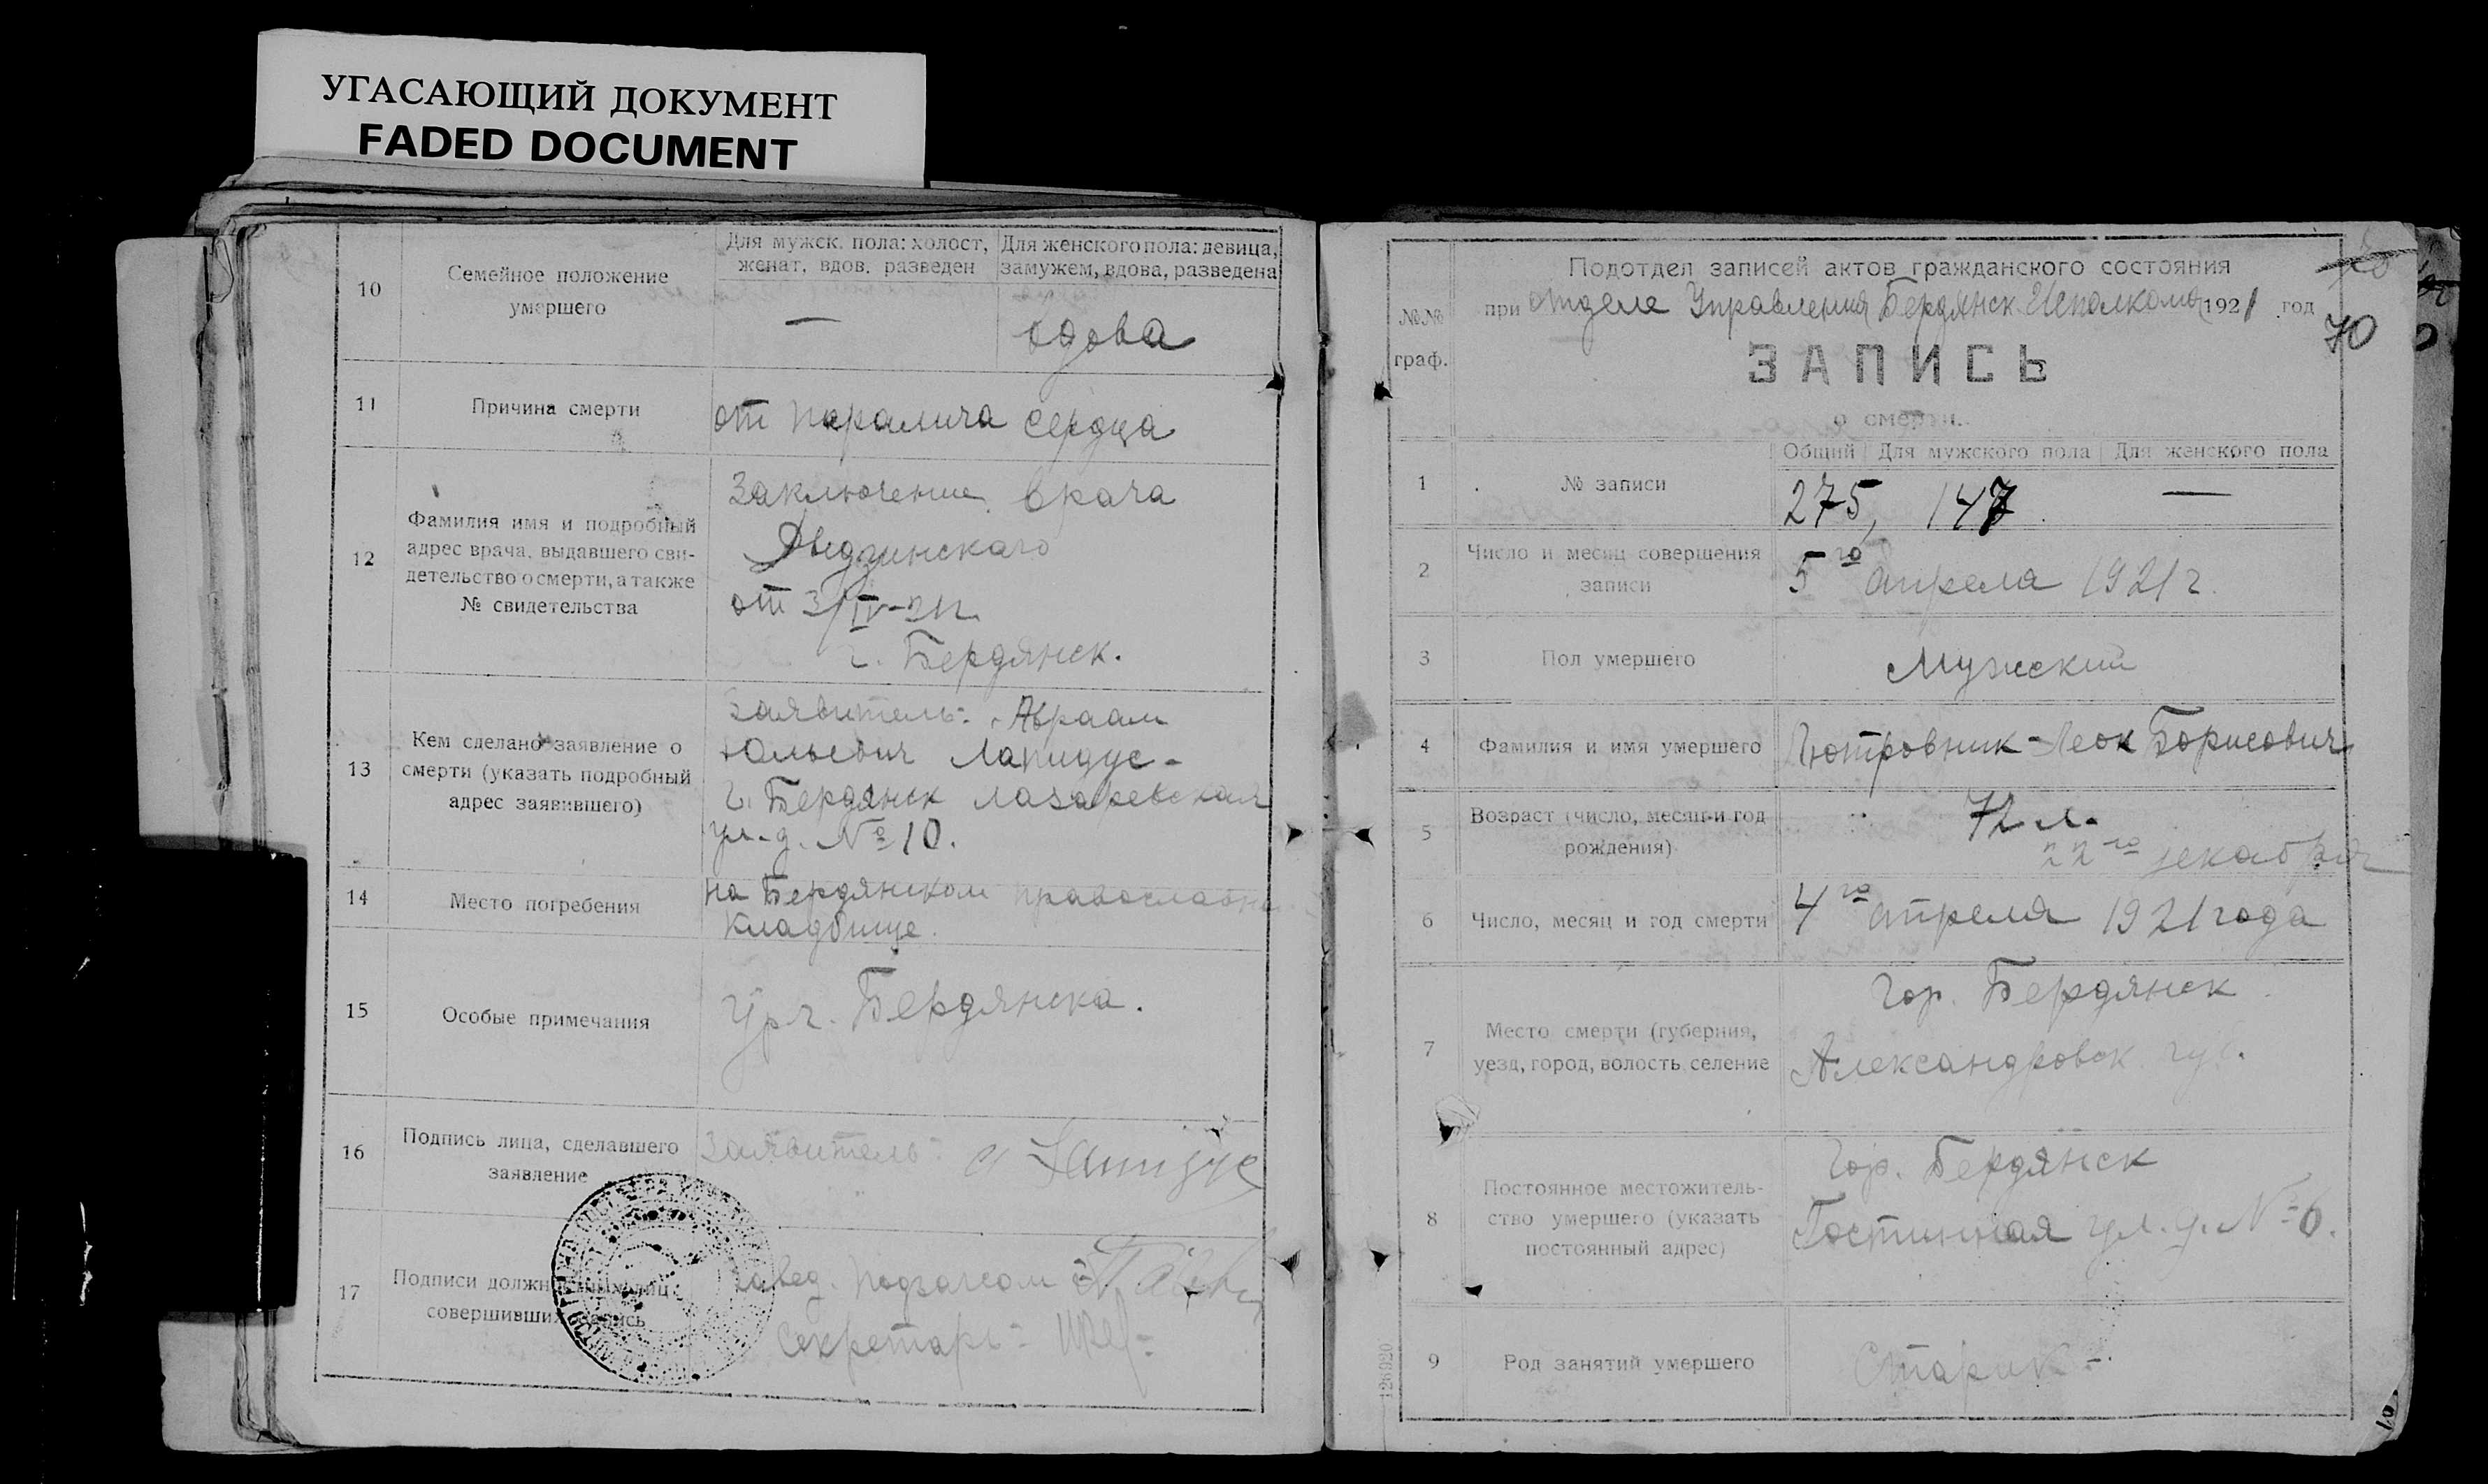 УГАСАЮЩИЙ ДОКУМЕНТ
FADED DOCUMENT
10
Семейное положение
умершего
Для мужск. пола: холост,
женат, вдов. разведен
Для женского пола: девица,
замужем, вдова, разведена
—
вдова
11
Причина смерти
от паралича сердца
12
Фамилия имя и подробный
адрес врача, выдавшего сви-
детельство о смерти, а также
№ свидетельства
Заключение врача
от 3/IV-21г.
г. Бердянск.
13
Кем сделано заявление о
смерти (указать подробный
адрес заявившего)
Заявитель: Авраам
Юльевич Лапидус -
г. Бердянск Лазаревская
ул. д. № 10.
14
Место погребения
на Бердянском православн
кладбище.
15
Особые примечания
Ур. г. Бердянска.
16
Подпись лица, сделавшего
заявление
Заявитель: А Лапидус
17
Подписи должностных лиц
совершивших запись
Завед. подзагсом
Секретарь:
№№
граф.
Подотдел записей актов гражданского состояния
при отделе Управления Бердянск Исполкома 1921 год
70
ЗАПИСЬ
о смерти.
1
№ записи
Общий Для мужского пола Для женского пола
275, 147 —
2
Число и месяц совершения
записи
5го апреля 1921 г.
3
Пол умершего
Мужский
4
Фамилия и имя умершего
Борисович
5
Возраст (число, месяц и год
рождения)
72 л.
22го декабря
6
Число, месяц и год смерти
4го апреля 1921 года
7
Место смерти (губерния,
уезд, город, волость селение
Гор. Бердянск
Александровск губ.
8
Постоянное местожитель-
ство умершего (указать
постоянный адрес)
Гор. Бердянск
Гостинная ул. д. № 6.
9
Род занятий умершего
Старик -
126920